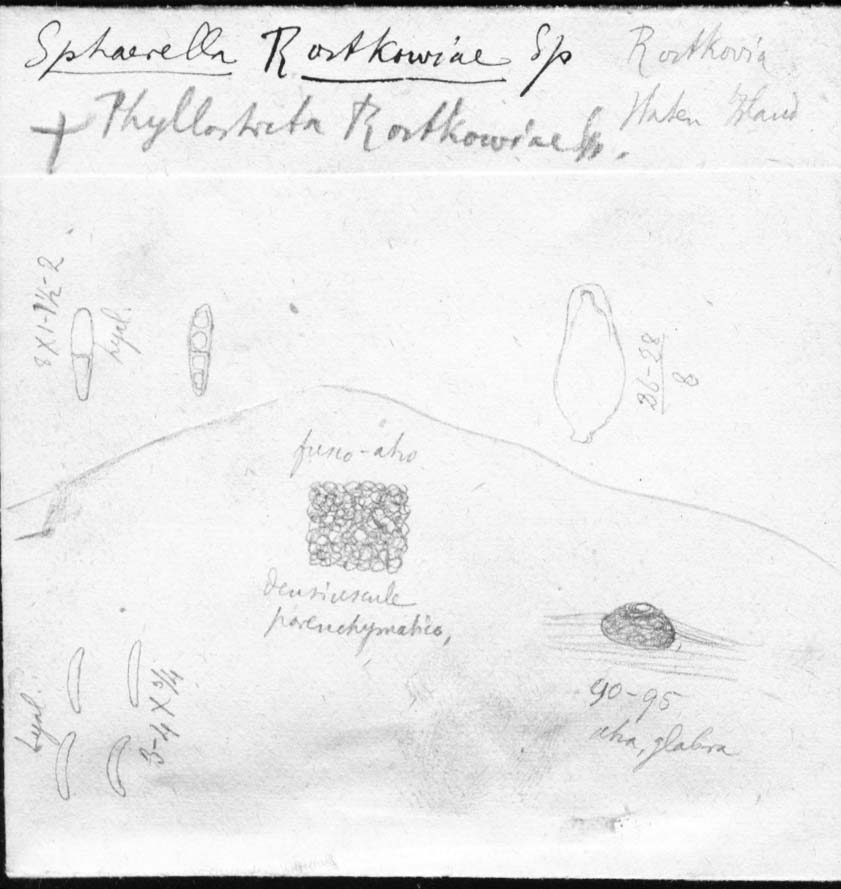 Sphaerella Rostkowiae Sp
Rostkovia
Staten Island
+ Phyllosticta Rostkowiae Sp.
8 X 1-1½-2
hyal.
26-28
8
fusco-atro
densiuscule
parenchymatico,
hyal.
3-4 X ¾
90-95
atra, glabra